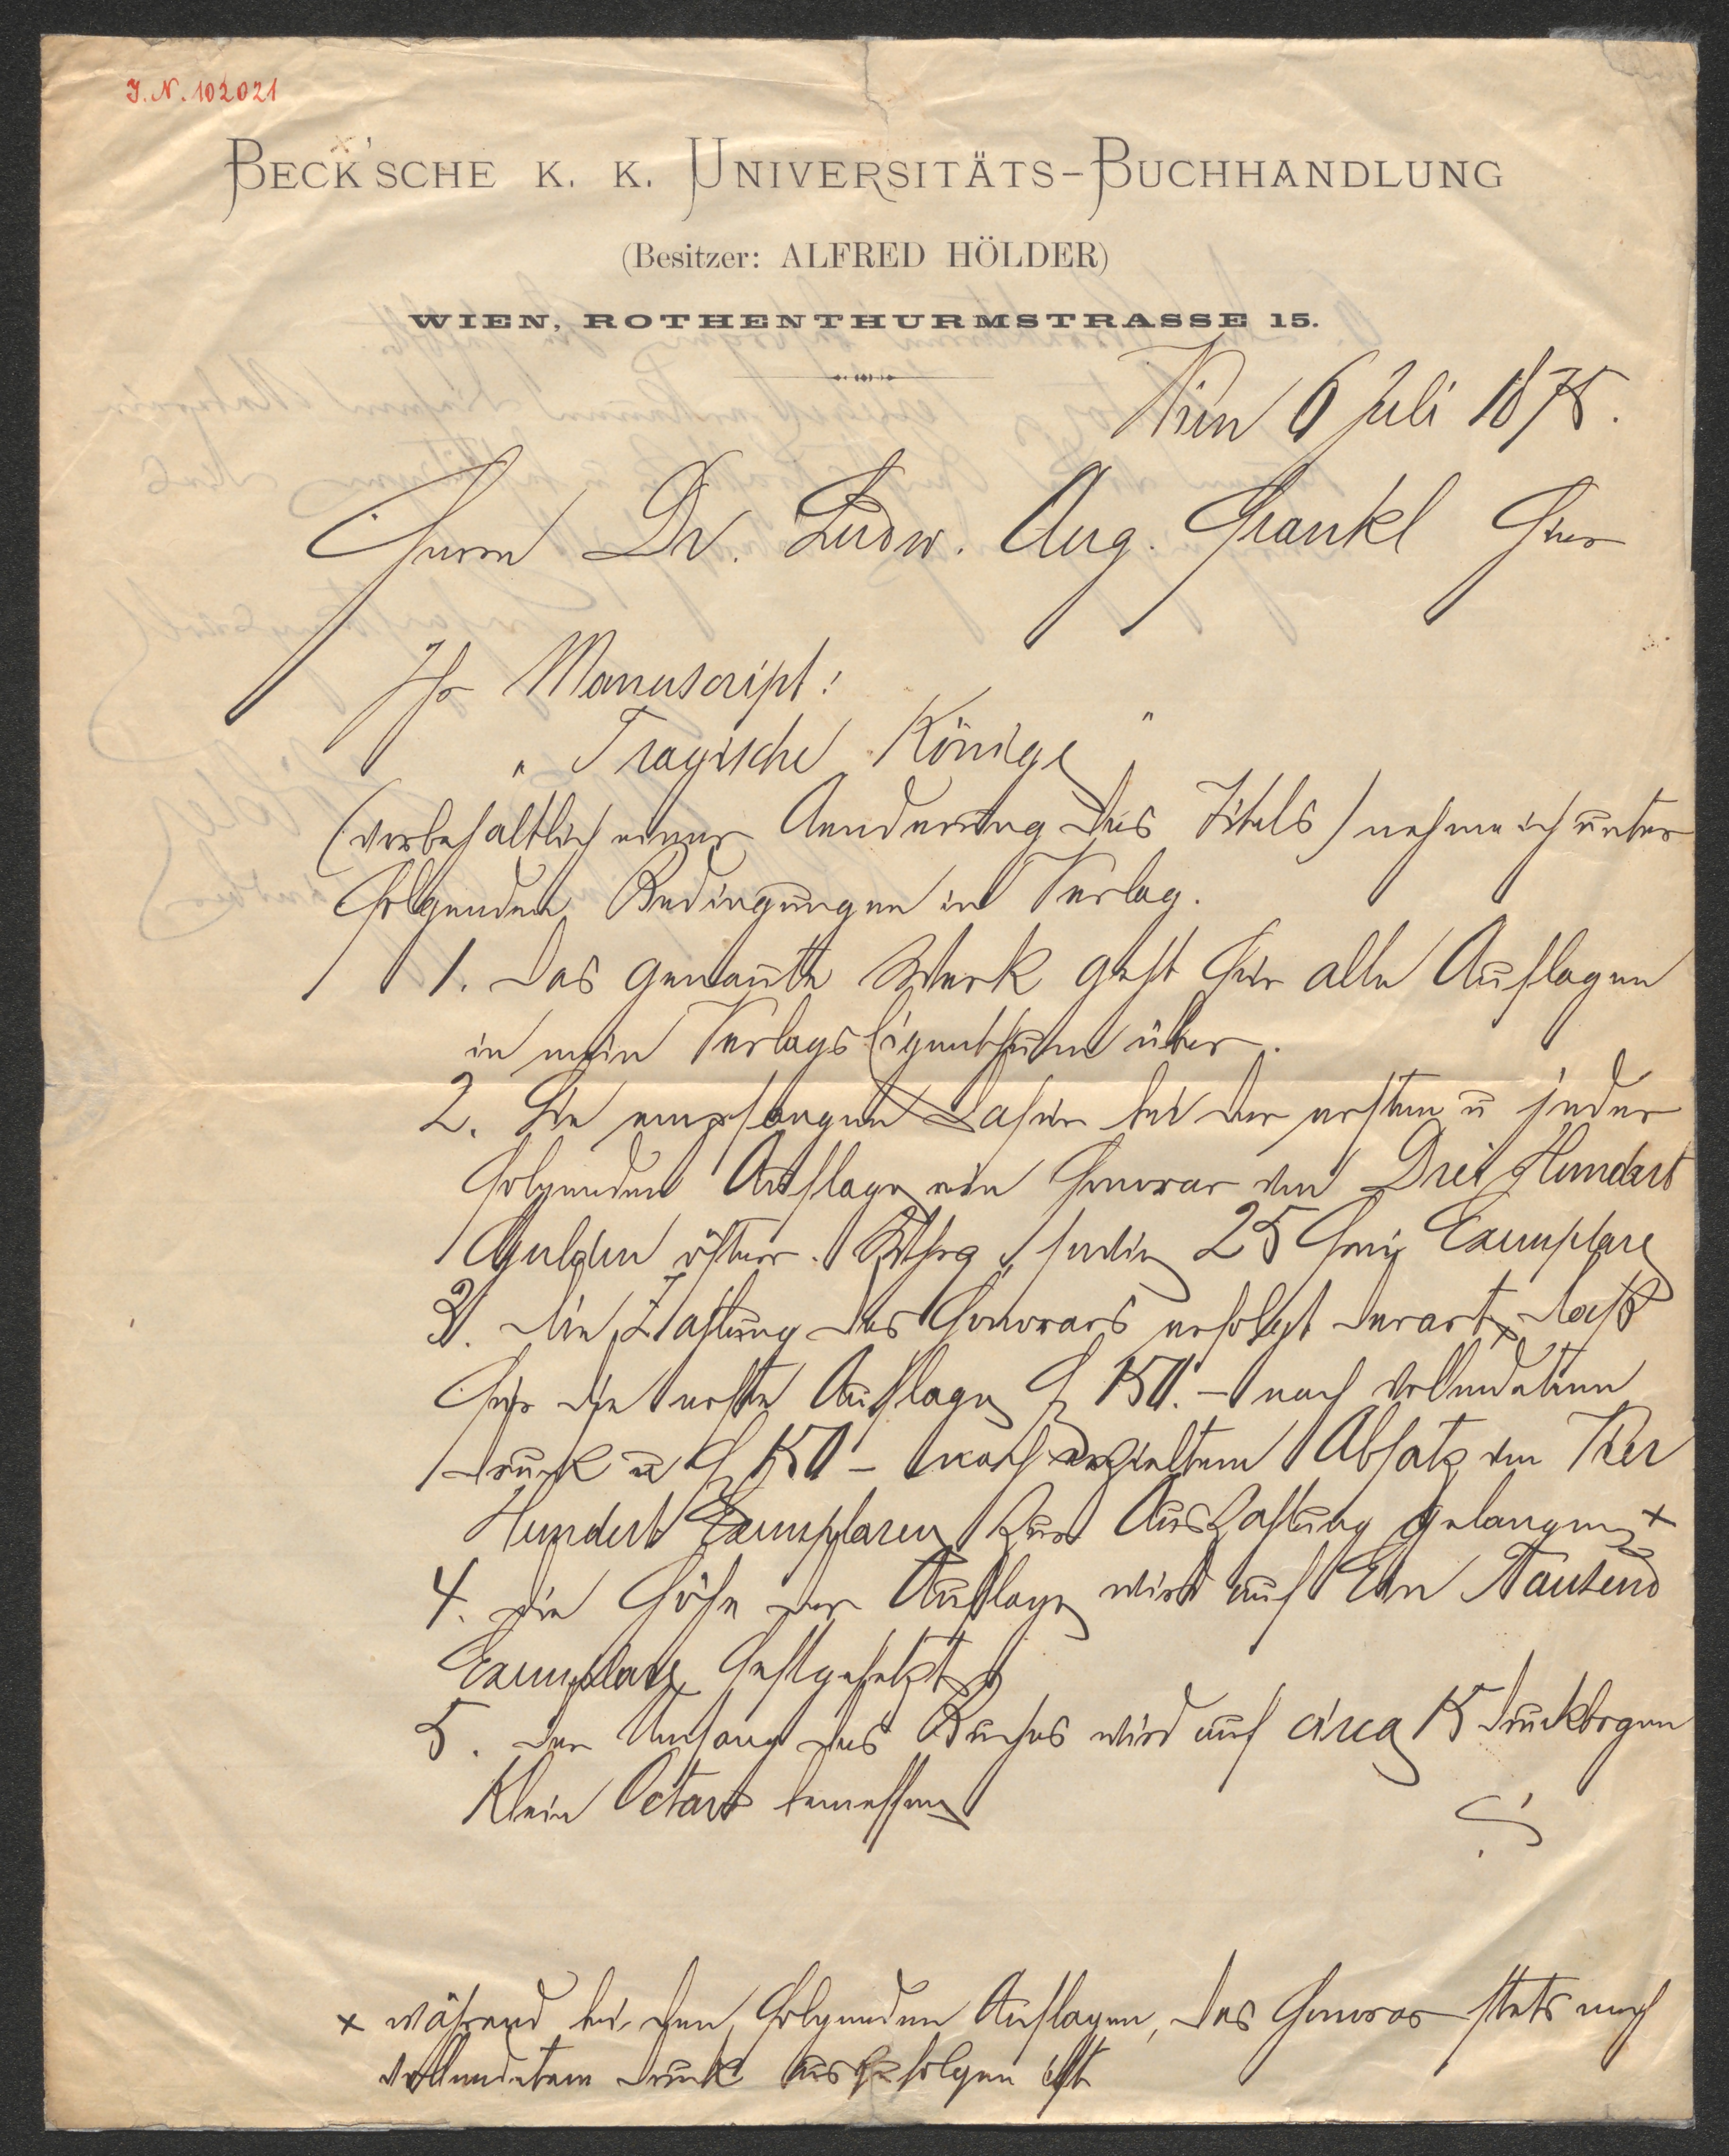 J. N. 102021
BECK'SCHE K. K. UNIVERSITÄTS-BUCHHANDLUNG
(Besitzer: ALFRED HÖLDER)
WIEN, ROTHENTHURMSTRASSE 15.
Wien 6 Juli 1875.
Herrn Dr. Ludw. Aug. Frankl Hier
Ihr Manuscript:
"Tragische Könige"
(vorbehaltlich einer Aenderung des Titels) nehme ich unter
folgenden Bedingungen in Verlag.
1. Das genannte Werk geht für alle Auflagen
in mein Verlags Eigenthum über.
2. Sie empfangen dafür bei der ersten u jeder
folgenden Auflage ein Honorar von Drei Hundert
Gulden österr. Whrg, sowie 25 Frei Exemplare
3. Die Zahlung des Honorars erfolgt derart, daß
für die erste Auflage f 150.- nach vollendetem
Druck u f 150 - nach erzieltem Absatz von Vier
Hundert Exemplaren zur Auszahlung gelangen x
4. Die Höhe der Auflage wird auf Ein Tausend
Exemplare festgesetzt
5. Der Umfang des Buches wird auf circa 15 Druckbogen
Klein Octav bemessen
x während bei den folgenden Auflagen, das Honorar stets nach
vollendetem Druck auszufolgen ist